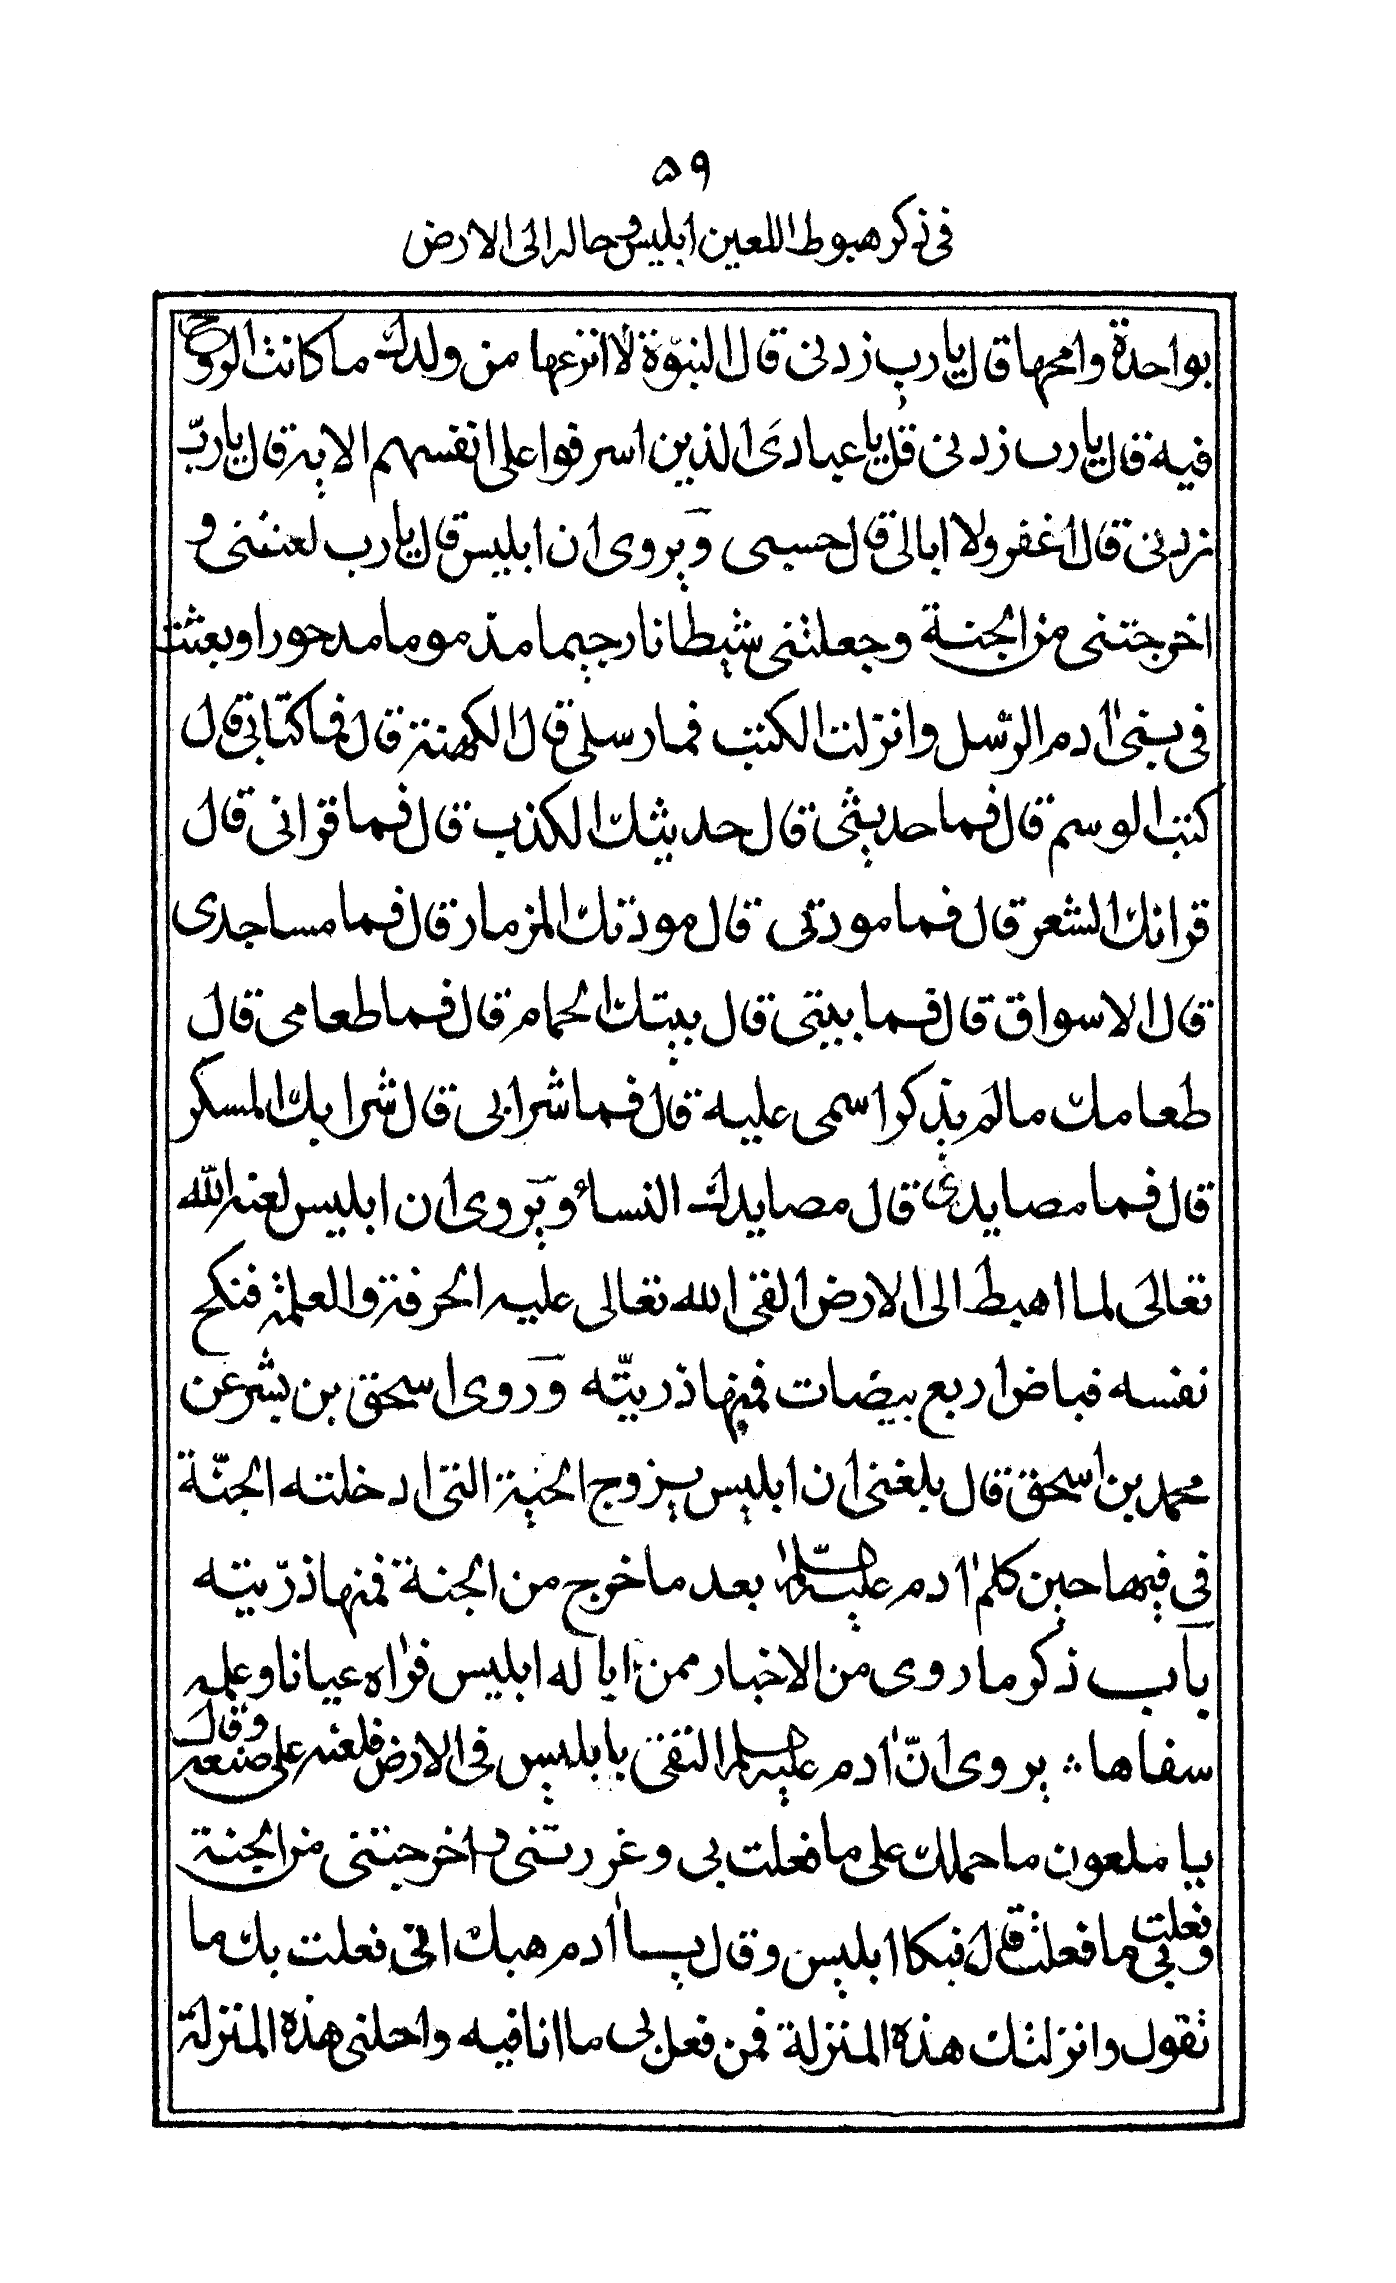 ٥٩
فى ذكر هبوط اللعين ابليس وحاله الى الارض
بواحدة وامحها قال يارب زدنى قال النبوّة لا انزعها من ولدك ما كانت الروح
فيه قال يارب زدنى قل يا عبادى الذين اسرفوا على انفسهم الاية قال يا ربّ
زدنى قال اغفر ولا ابالى قال حسبى ويروى ان ابليس قال يارب لعنتنى و
اخرجتنى من الجنة وجعلتنى شيطانا رجيما مذموما مدحورا وبعثت
فى بنى اٰدم الرّسل وانزلت الكتب فما رسلى قال الكهنة قال فما كتابى قال
كتب الوسم قال فما حديثى قال حديثك الكذب قال فما قرانى قال
قرانك الشعر قال فما موذنى قال موذنك المزمار قال فما مساجدى
قال الاسواق قال فما بيتى قال بيتك الحمام قال فما طعامى قال
طعامك مالم يذكر اسمى عليه قال فما شرابى قال شرابك المسكر
قال فما مصايدى قال مصايدك النساء ويروى ان ابليس لعنه الله
تعالى لما اهبط الى الارض القى الله تعالى عليه الحرفة والعلمة فنكح
نفسه فباض اربع بيضات فمنها ذريتّه وروى اسحق بن بشر عن
محمد بن اسحق قال بلغنى ان ابليس يزوج الحية التى ادخلته الجنّة
فى فيها حين كلم اٰدم عليه السّلام بعد ما خرج من الجنة فمنها ذرّيته
باب ذكر ما روى من الاخبار ممن ايا له ابليس فراٰه عيانا وعلمه
سفاها : يروى انّ اٰدم عليه السلام التقى بابليس فى الارض فلعنه على صنعه وقال
يا ملعون ما حملك على ما فعلت بى وغررتنى واخرجتنى من الجنة
وفعلت بى ما فعلت قال فبكا ابليس وقال يا اٰدم هبك انى فعلت بك ما
تقول وانزلتك هذه المنزلة فمن فعل بى ما انا فيه واحلنى هذه المنزلة